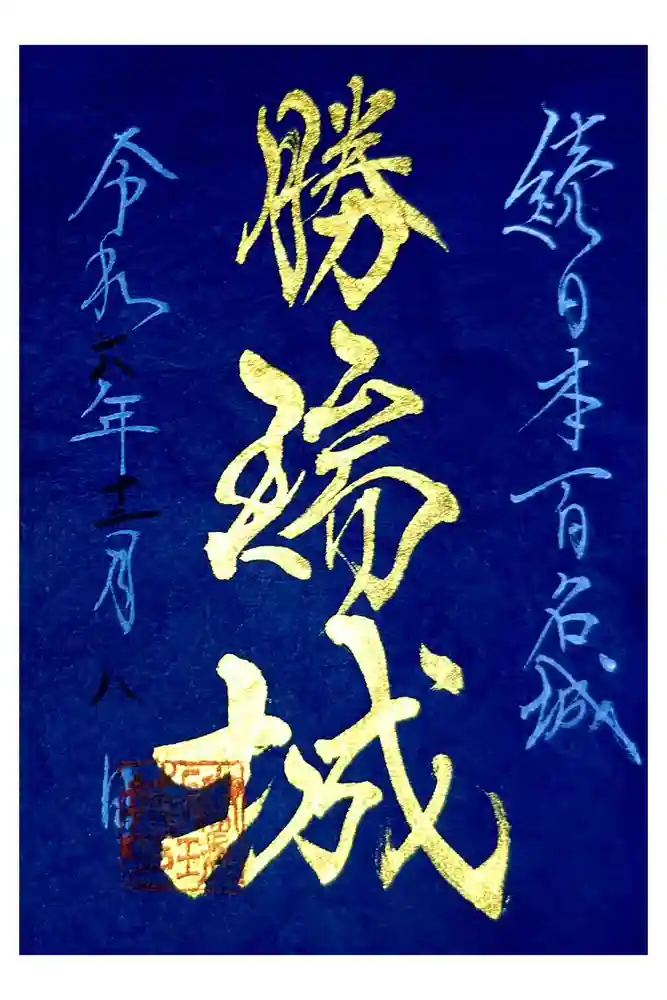 続日本百名城
勝瑞城
令和六年十二月八日